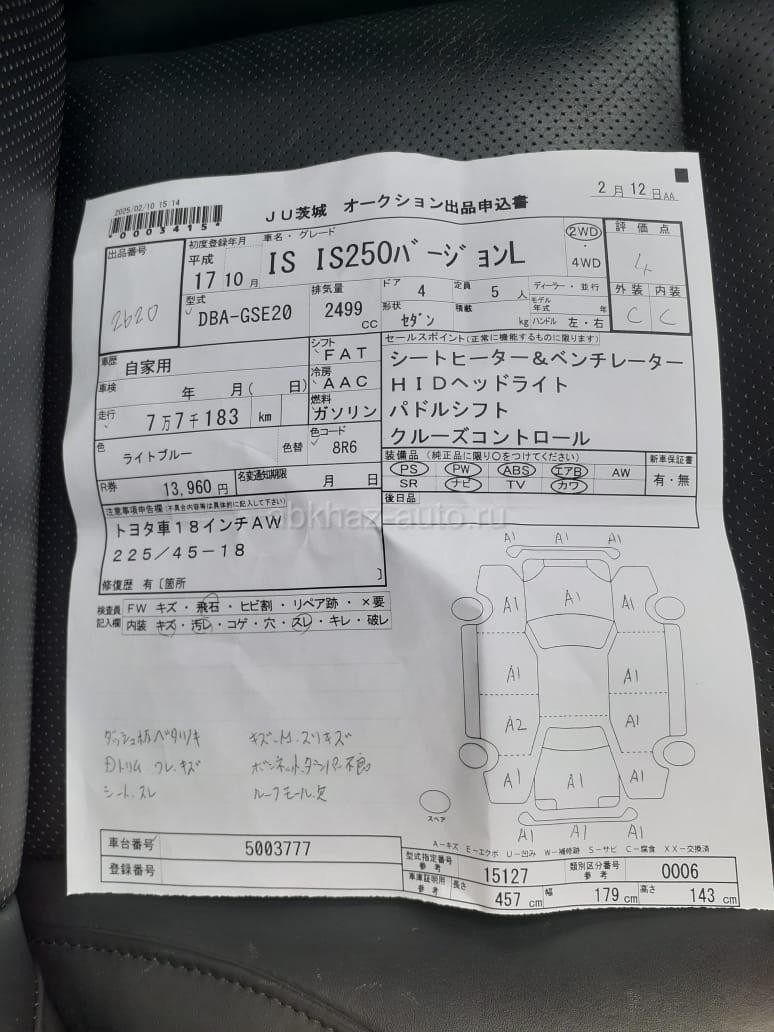 2025/02/10 15:14
*0003415*
JU茨城 オークション出品申込書
2月12日AA
出品番号
2620
初度登録年月
平成
17 10月
車名・グレード
IS IS250バージョンL
2WD
・
4WD
評価点
4
外装 内装
C C
型式
DBA-GSE20
排気量
2499
CC
ドア 4
定員 5 人
形状
セダン
積載
kg
ディーラー・並行
モデル
年式 年
ハンドル 左・右
車歴
自家用
シフト
FAT
車検
年 月( 日)
冷房
AAC
走行
7万7千183 km
燃料
ガソリン
色
ライトブルー
色替
色コード
8R6
R券
13,960円
名変通知期限
月 日
セールスポイント(正常に機能するものに限ります)
シートヒーター&ベンチレーター
HIDヘッドライト
パドルシフト
クルーズコントロール
装備品(純正品に限り○をつけてください)
PS PW ABS エアB AW
SR ナビ TV カワ
新車保証書
有・無
後日品
注意事項申告欄(不具合内容等は具体的に記入して下さい)
トヨタ車18インチAW
225/45-18
修復歴 有〔箇所 〕
abkhaz-auto.ru
検査員
記入欄
FW キズ・飛石・ヒビ割・リペア跡・×要
内装 キズ・汚レ・コゲ・穴・スレ・キレ・破レ
A1 A1 A1
A1 A1 A1
A1 A1
A2 A1
A1 A1 A1
A1 A1 A1
スペア
シート.スレ
ルーフモール欠
A-キズ E-エクボ U-凹み W-補修跡 S-サビ C-腐食 XX-交換済
車台番号
5003777
登録番号
型式指定番号
参考
15127
類別区分番号
参考
0006
車庫証明用
参考
長さ
457 cm
幅
179 cm
高さ
143 cm